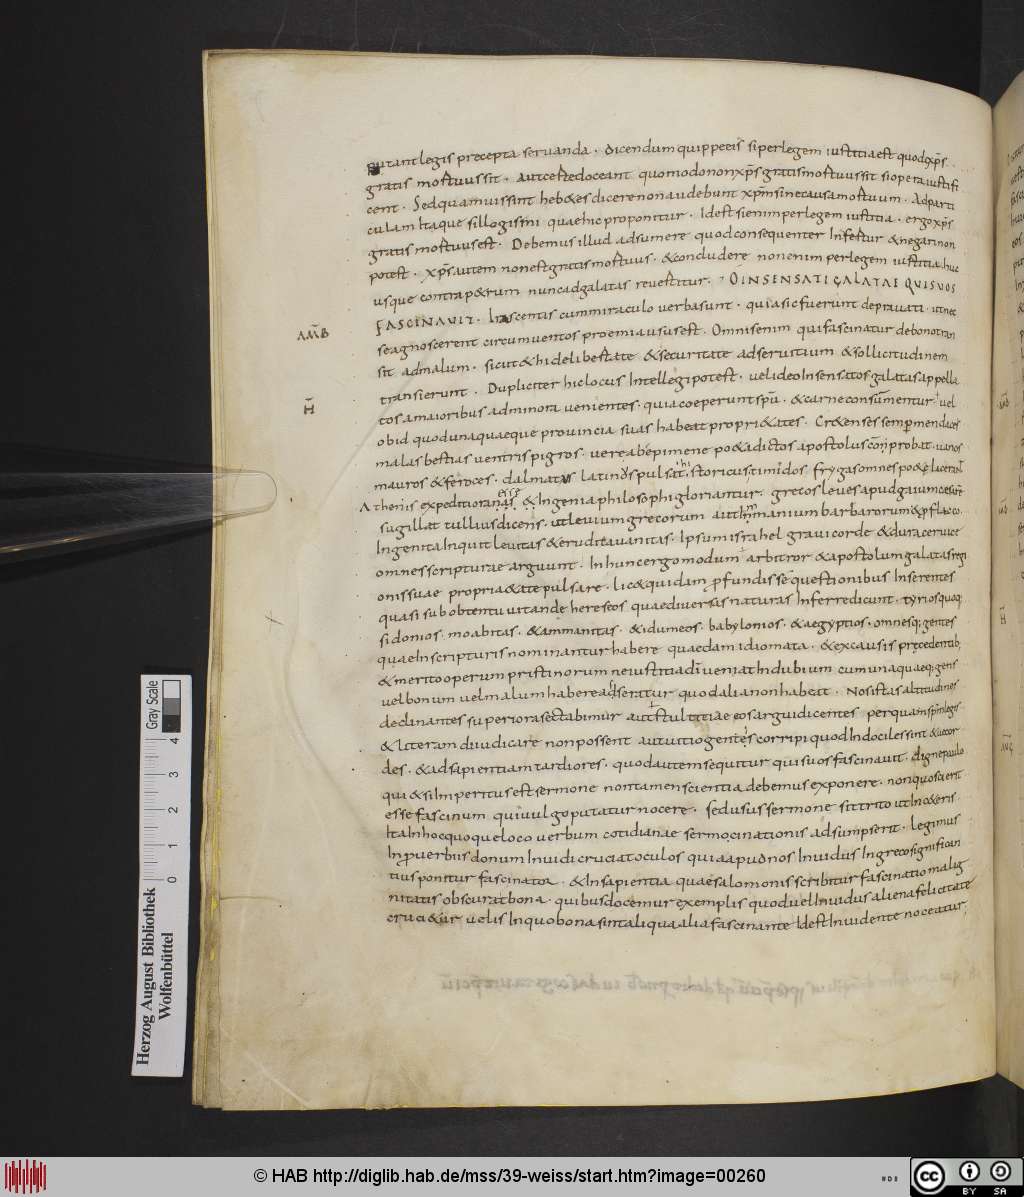 putant legis precepta seruanda · dicendum quippe eis si per legem iustitia est quod xp̄s
gratis mortuus sit · aut certe doceant quomodo non xp̄s gratis mortuus sit si opera iustifi
cent · Sed quamuis sint hebetes dicere non audebunt xp̄m sine causa mortuum · Ad parti
culam itaque sillogismi quae hic proponitur · Id est si enim per legem iustitia · ergo xp̄s
gratis mortuus est · Debemus illud adsumere quod consequenter Infertur & negari non
potest · xp̄s autem non est gratis mortuus · & concludere non enim per legem iustitia · huc
usque contra p&rum nunc ad galatas reuertitur · O INSENSATI GALATAE QUIS UOS
FASCINAUIT · Irascentis cum miraculo uerba sunt · quia sic fuerunt deprauati · ut nec
se agnoscerent circumuentos proemia usus est · Omnis enim qui fascinatur de bono tran
AM̄B
sit ad malum · sicut & hi de libertate & securitate ad seruitium & sollicitudinem
transierunt · Dupliciter hic locus Intellegi potest · uel ideo Insensatos galatas appella
H̄
tos a maioribus ad minora uenientes · quia coeperunt sp̄u · & carne consūmentur · uel
ob id quod unaquaeque prouincia suas habeat propri&ates · Cr&enses semper mendaces
malas bestias uentris pigros · uere ab epimene po&a dictos apostolus conprobat · uanos
mauros & feroces · dalmatas latinus pulsat historicus · timidos frygas omnes po&ae lacerant
Athenis expeditiora nasci & Ingenia philosophi gloriantur · grecos leues apud gaium cesarē
sugillat tullius dicens · ut leuium grecorum aut Inmanium barbarorum & p flacco
Ingenita Inquit leuitas & erudita uanitas · Ipsum israhel graui corde & dura ceruice
omnes scripturae arguunt · In hunc ergo modum arbitror & apostolum galatas regi
onis suae propri&ate pulsare · lic& quidam profundisse questionibus Inserentes
quasi sub obtentu uitandae hereseos quae diuersas naturas Inferre dicunt · tyrios quoq;
sidonios · moabitas · & ammanitas · & idumeos · babylonios · & aegyptios · omnesq; gentes
quae In scripturis nominantur habere quaedam idiomata · & ex causis precedentib;
& merito operum pristinorum ne iustitia dī ueniat In dubium cum unaquaeq; gens
uel bonum uel malum habere adseritur quod alia non habeat · Nos istas altitudines
declinantes superiora sectabimur aut stultitiae eos argui dicentes per quam sp̄m legis
& literam diiudicare non possent aut uitio gentis corripi quod Indociles sint & uecor
des · & ad sapientiam tardiores · quod autem sequitur quis uos fascinauit · digne paulo
qui & si Inperitus est sermone non tamen scientia debemus exponere · non quo scierit
esse fascinum qui uulgo putatur nocere · sed usus sermone sit triuio ut In c&eris
Ita In hoc quoque loco uerbum cotidianae sermocinationis adsumpserit · legimus
In prouerbiis donum Inuidi cruciat oculos qui apud nos Inuidus In greco significan
tius ponitur fascinator · & In sapientia quae salomonis scribitur fascinatio malig
nitatis obscurat bona · quibus docemur exemplis quod uel Inuidus aliena felicitate
cruci&ur uel is In quo bona sint aliqua alia fascinante Id est Inuidente noceatur
Herzog August Bibliothek
Wolfenbüttel
0 1 2 3 4
Gray Scale
© HAB http://diglib.hab.de/mss/39-weiss/start.htm?image=00260
cc BY SA